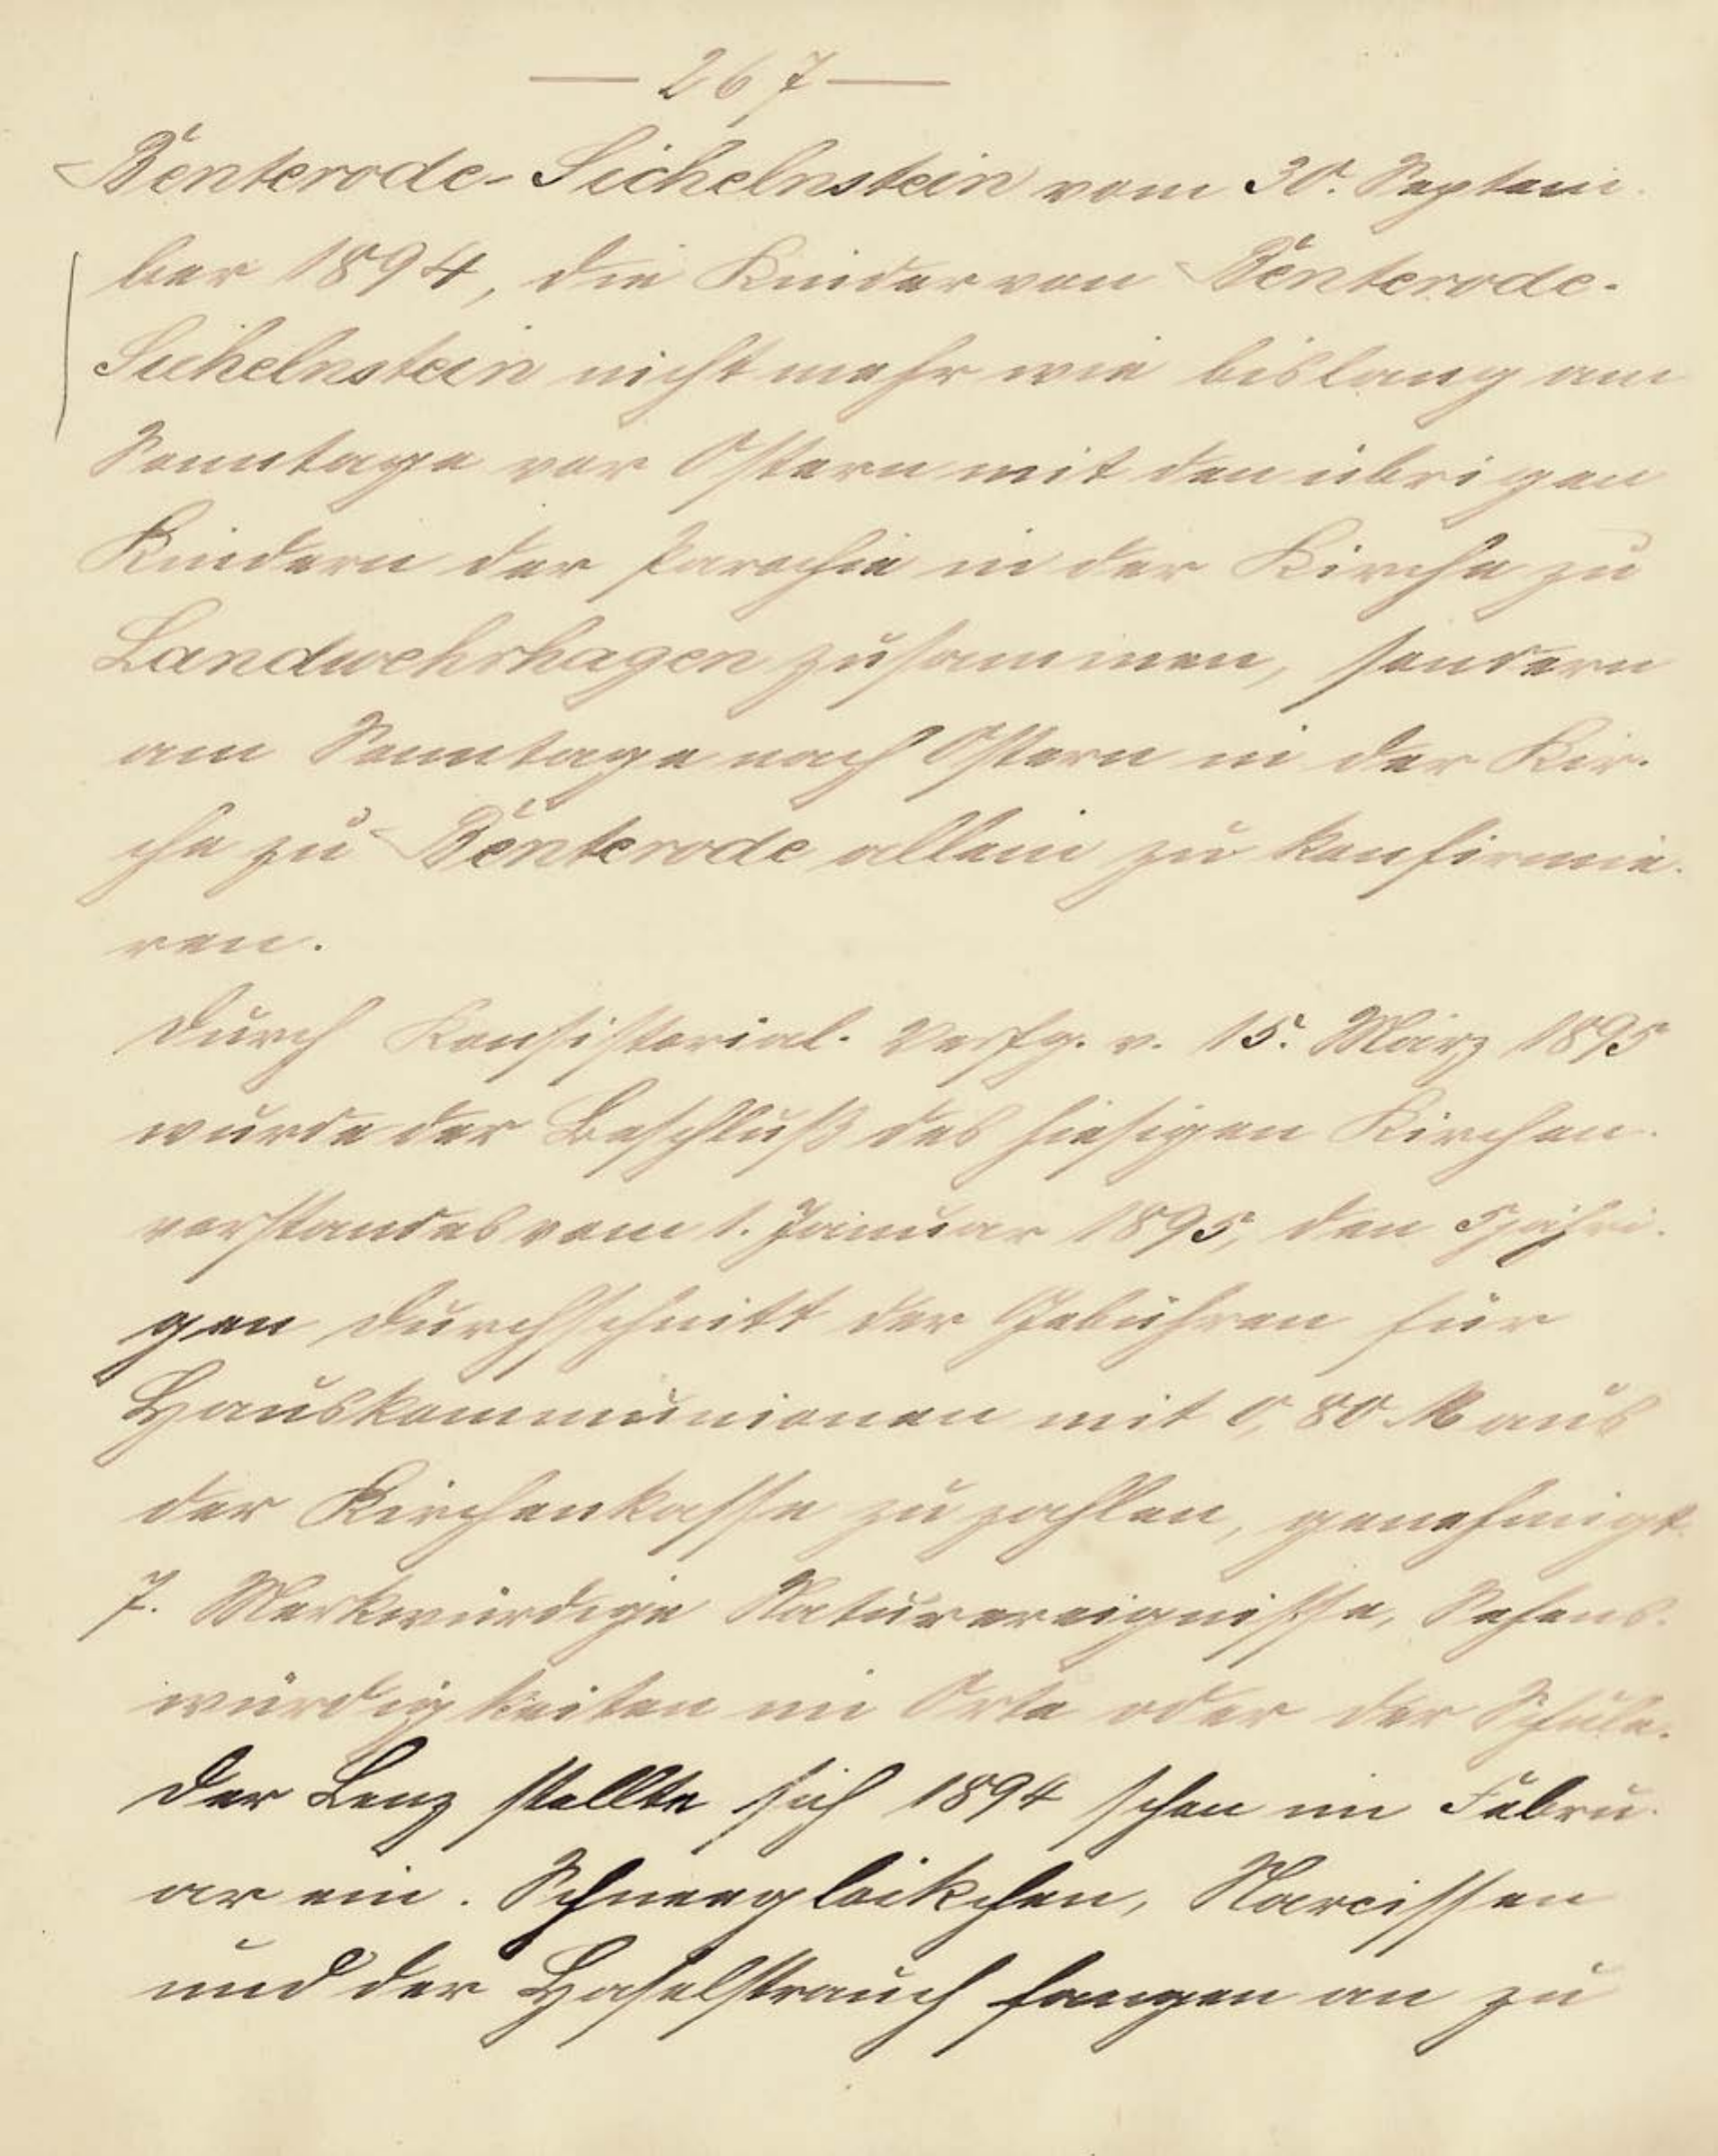 — 267 —
Benterode-Sichelnstein vom 30. Septem-
ber 1894, die Kinder von Benterode-
Sichelnstein nicht mehr wie bislang am
Sonntage vor Ostern mit den übrigen
Kindern der Parochie in der Kirche zu
Landwehrhagen zusammen, sondern
am Sonntage nach Ostern in der Kir-
che zu Benterode allein zu konfirmie-
ren.
Durch Konsistorial-Verfg. v. 15. März 1895
wurde der Beschluß des hiesigen Kirchen-
vorstandes vom 1. Januar 1895, den 5jähri-
gen Durchschnitt der Gebühren für
Hauskommunionen mit 0,80 M aus
der Kirchenkasse zu zahlen, genehmigt.
7. Merkwürdige Naturereignisse, Sehens-
würdigkeiten im Orte oder der Schule.
Der Lenz stellte sich 1894 schon im Febru-
ar ein. Schneeglöckchen, Narcissen
und der Haselstrauch fangen an zu